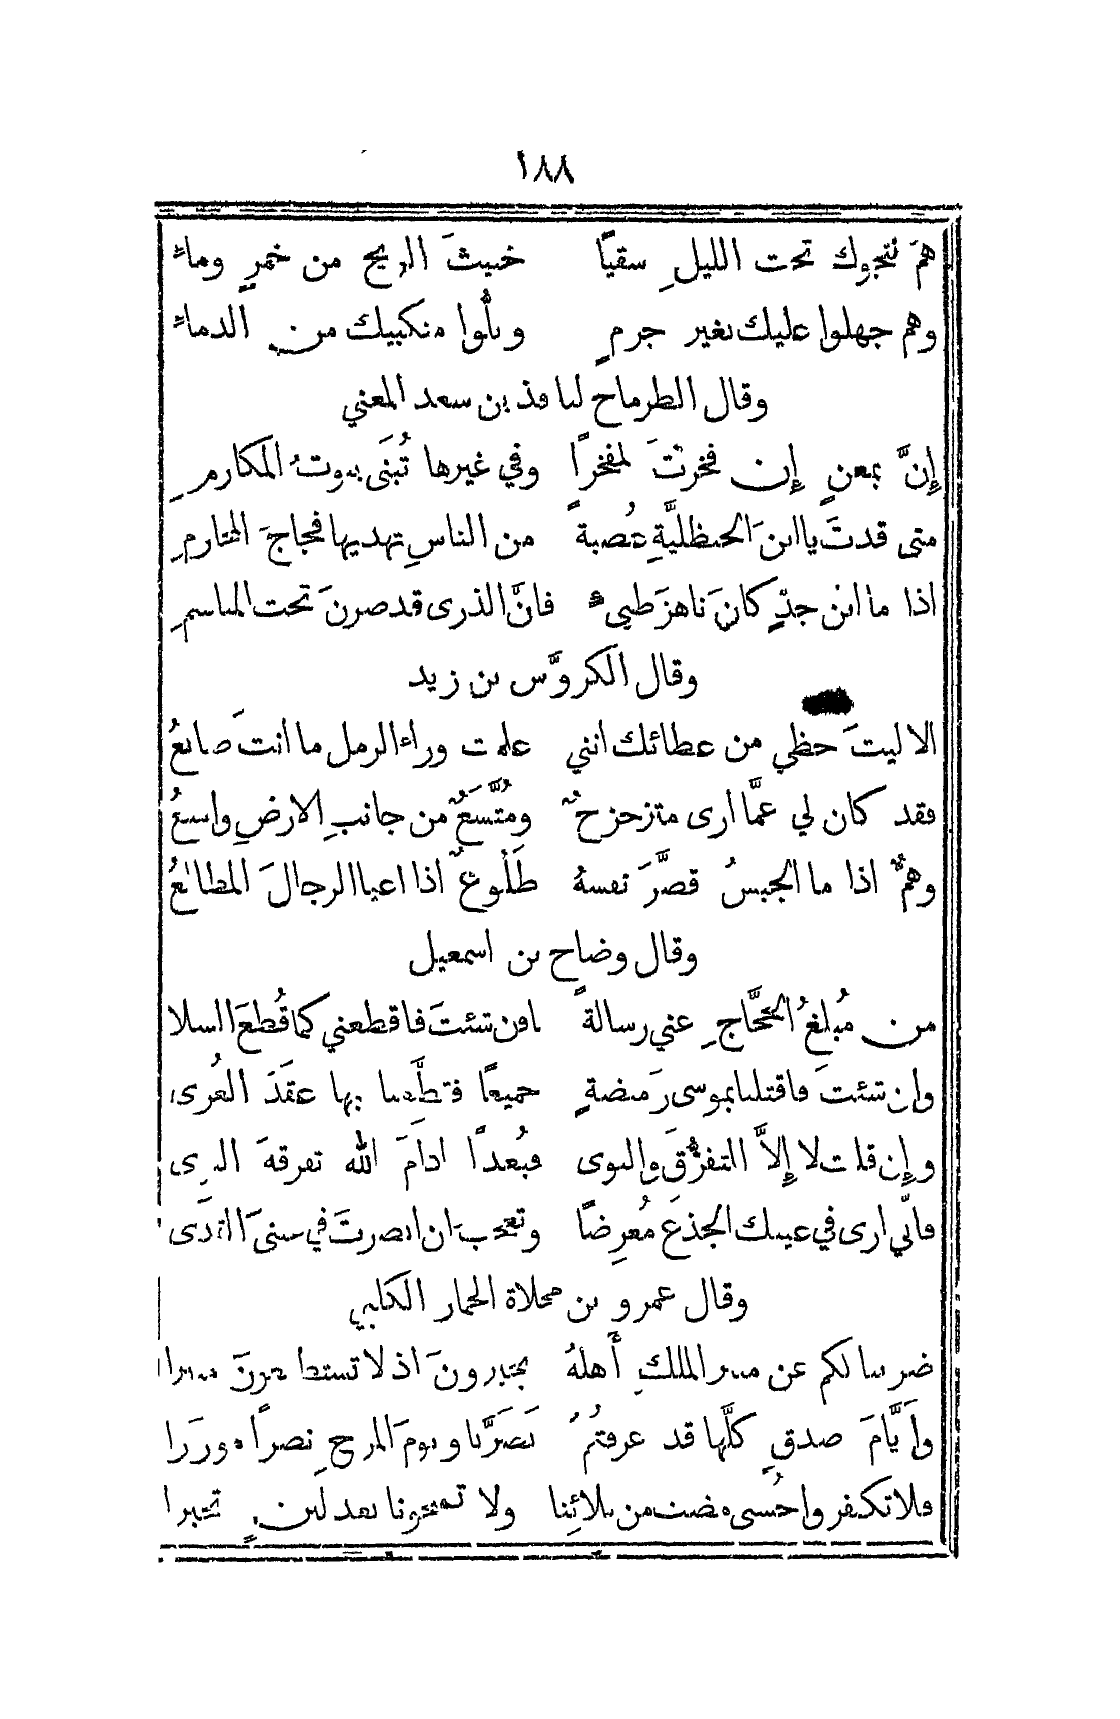 ١٨٨
هم نتجوك تحت الليلِ سقبًا خبيثَ الريح من خمرٍ وماءِ
وهم جهلوا عليك بغير جرمٍ وبلُّوا منكبيك من الدماءِ
وقال الطرماح لنافذ بن سعد المعني
إنَّ بمعنٍ إن فخرتَ لمفخرًا وفي غيرها تُبنَى بيوتُ المكارمِ
متى قدتَ يا ابنَ الحنظليَّةِ عُصبةً من الناسِ تهديها فجاجَ المخارمِ
اذا ما ابن جدٍّ كانَ ناهزَ طيىءٍ فانَّ الذرى قد صرنَ تحت المناسمِ
وقال الكروَّس بن زيد
الا ليتَ حظي من عطائك انني علمت وراء الرمل ما انتَ صانعُ
فقد كان لي عمَّا أرى متزحزحٌ ومُتَّسَعٌ من جانبِ الارضِ واسعُ
وهمٌّ اذا ما الجبسُ قصَّرَ نفسهُ طَلُوعٌ اذا اعيا الرجالَ المطالعُ
وقال وضاح بن اسمعيل
من مُبلغُ الحجَّاجِ عني رسالةً فان شئتَ فاقطعني كما قُطعَ السلا
وان شئتَ فاقتلنا بموسى رَميضةٍ جميعًا فقطِّعنا بها عقَدَ العُرى
وإن قلت لا إلاَّ التفرُّقَ والنوى فبُعدًا ادامَ الله تفرقةَ النوى
فانِّي ارى في عينك الجذعَ مُعرِضًا وتعجبَ ان ابصرتَ في عينيَّ القذى
وقال عمرو بن مخلاة الحمار الكلبي
ضربنا لكم عن منبر الملكِ أهلهُ بجيرونَ اذ لا تستطيعونَ منبرا
وأيَّامَ صدقٍ كلَّها قد عرفتُمُ نَصَرْنا ويومَ المرجِ نصراً مؤزَّرا
فلا تكفروا حُسنى مضت من بلائِنا ولا تمنحونا بعد لينٍ تجبرا